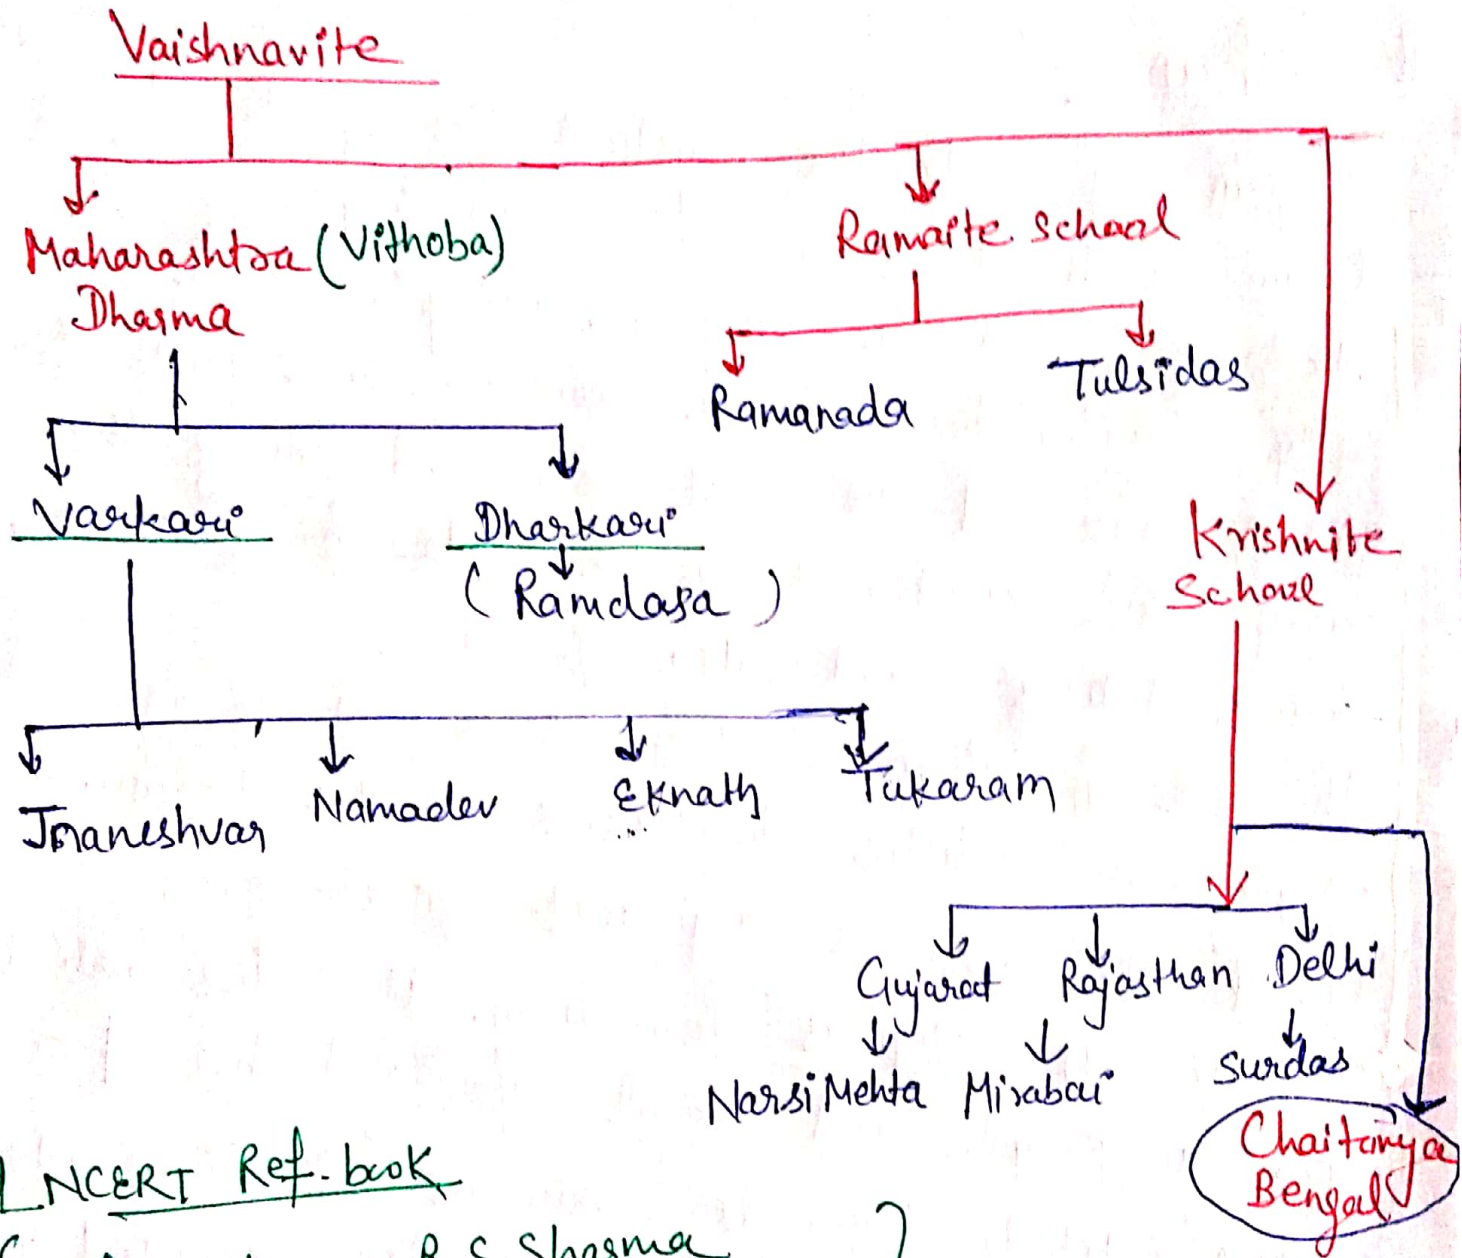 Vaishnavite
Maharashtra (Vithoba)
Dharma
Ramaite School
Ramanada
Tulsidas
Varkari
Dharkari
( Ramdasa )
Krishnite
School
Jnaneshvar
Namadev
Eknath
Tukaram
Gujarat
Rajasthan
Delhi
Narsi Mehta
Mirabai
Surdas
Chaitanya
Bengal
NCERT Ref. book
R. S. Sharma